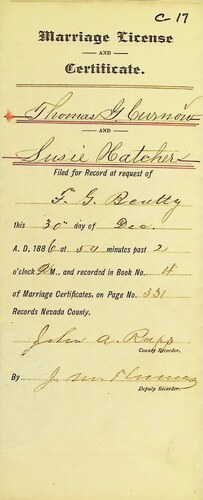 C-17
Marriage License
AND
Certificate.
Thomas G. Curnow
AND
Susie Hatcher
Filed for Record at request of
F. G. Beatty
this 30 day of Dec.
A. D., 1886 at 50 minutes past 2
o'clock P.M., and recorded in Book No. 4
of Marriage Certificates, on Page No. 331
Records Nevada County.
John A. Rapp
County Recorder.
By J. M.
Deputy Recorder.